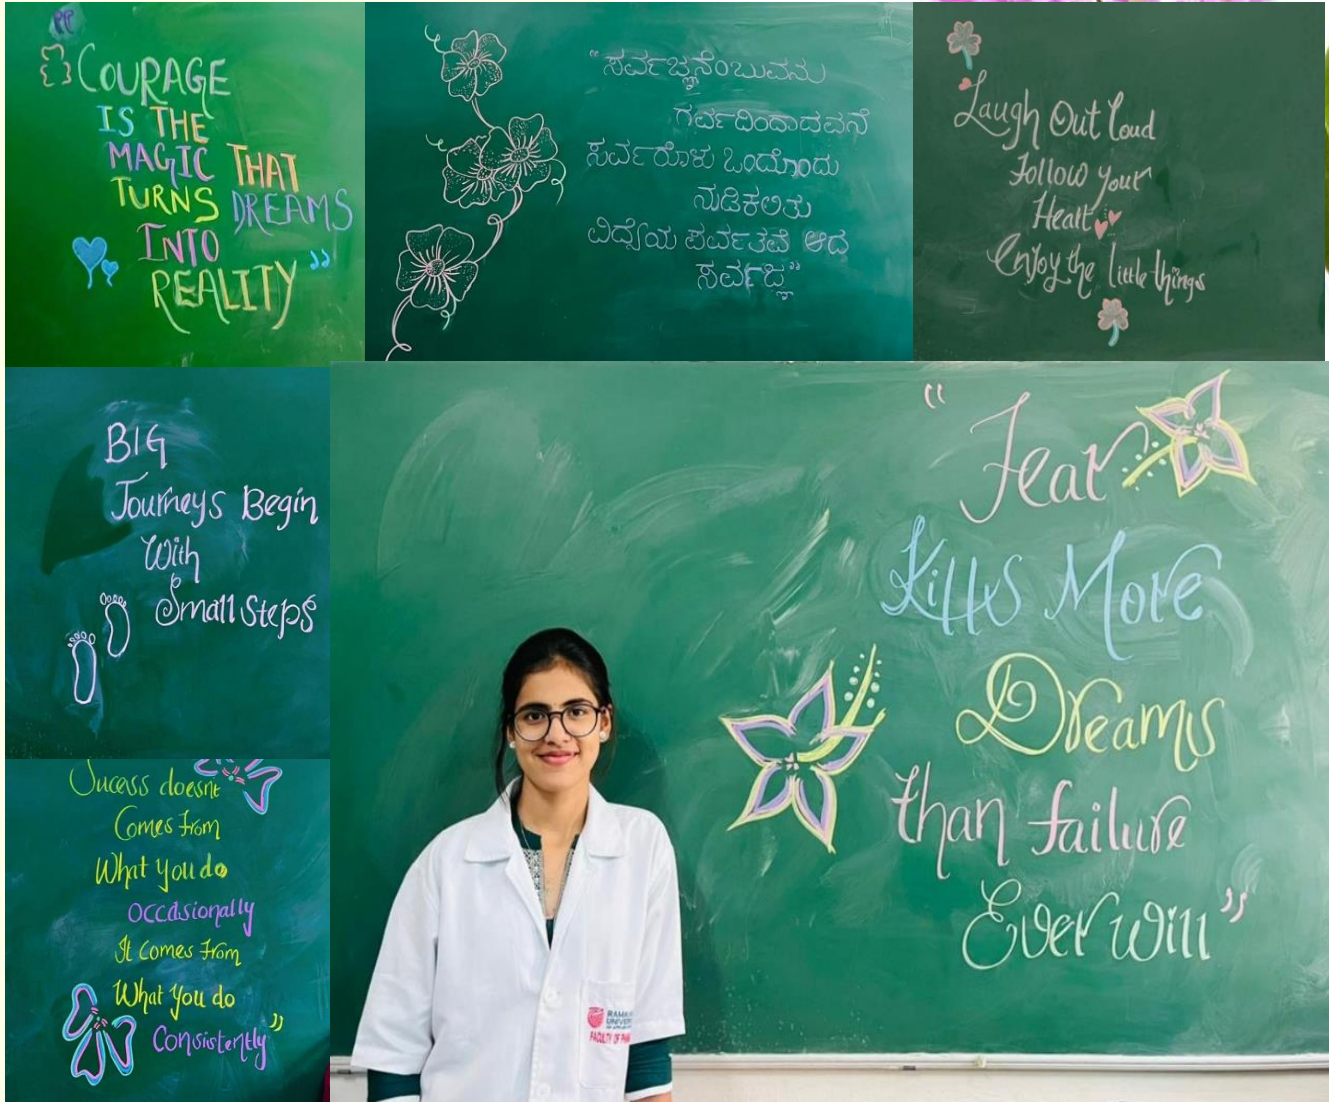 PP
COURAGE
IS THE
MAGIC THAT
TURNS DREAMS
INTO
REALITY"
"ಸರ್ವಜ್ಞನೆಂಬುವನು
ಗರ್ವದಿಂದಾದವನೆ
ಸರ್ವರೊಳು ಒಂದೊಂದು
ನುಡಿಕಲಿತು
ವಿದ್ಯೆಯ ಪರ್ವತವೆ ಆದ
ಸರ್ವಜ್ಞ"
Laugh Out loud
Follow your
Heart
Enjoy the little things
BIG
Journeys Begin
With
Small Steps
Sucess doesnt
Comes from
What you do
occasionally
It comes from
What you do
Consistently"
"Fear
Kills More
Dreams
than failure
Ever will"
UNIVER
FACULTY OF